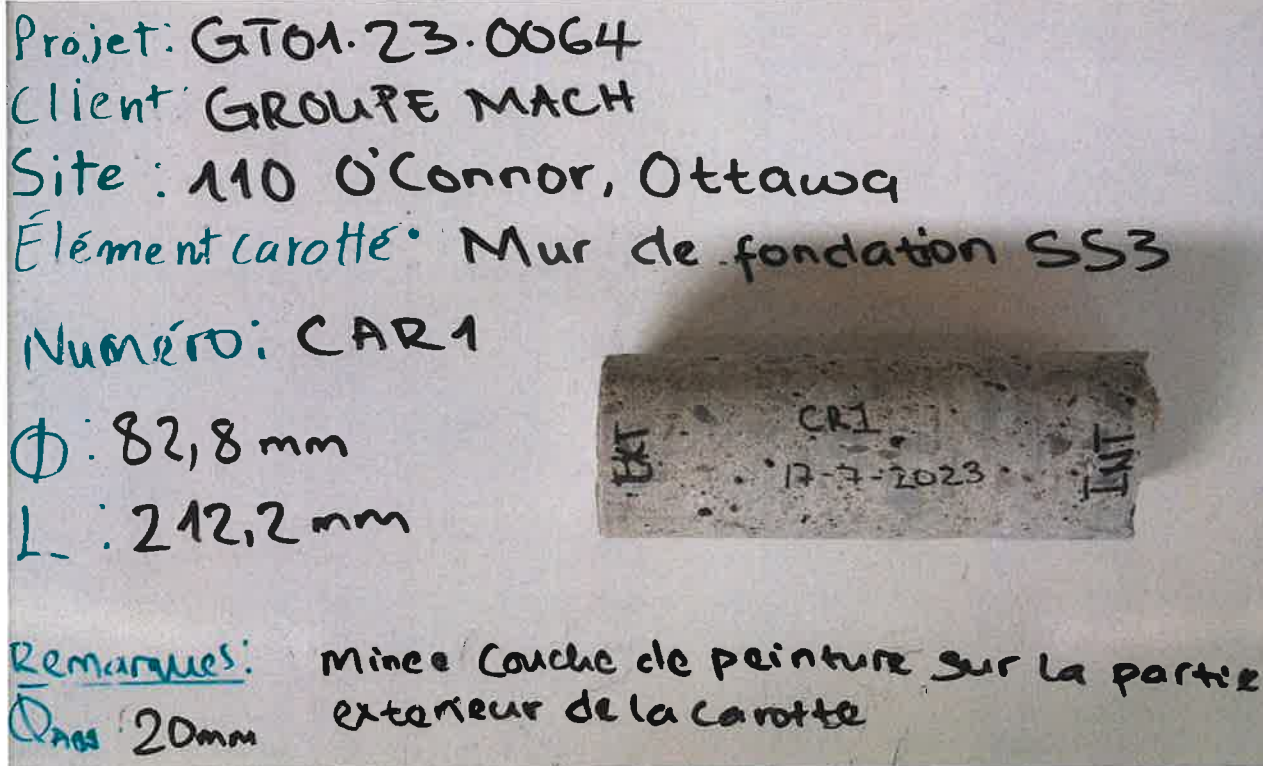 Projet: GT01.23.0064
Client: GROUPE MACH
Site: 110 O'Connor, Ottawa
Élément carotté: Mur de fondation SS3
Numéro: CAR1
Φ: 82,8 mm
L: 212,2 mm
EXT
CR1
17-7-2023
INT
Remarques: Mince Couche de peinture sur la partie
exterieur de la carotte
20mm